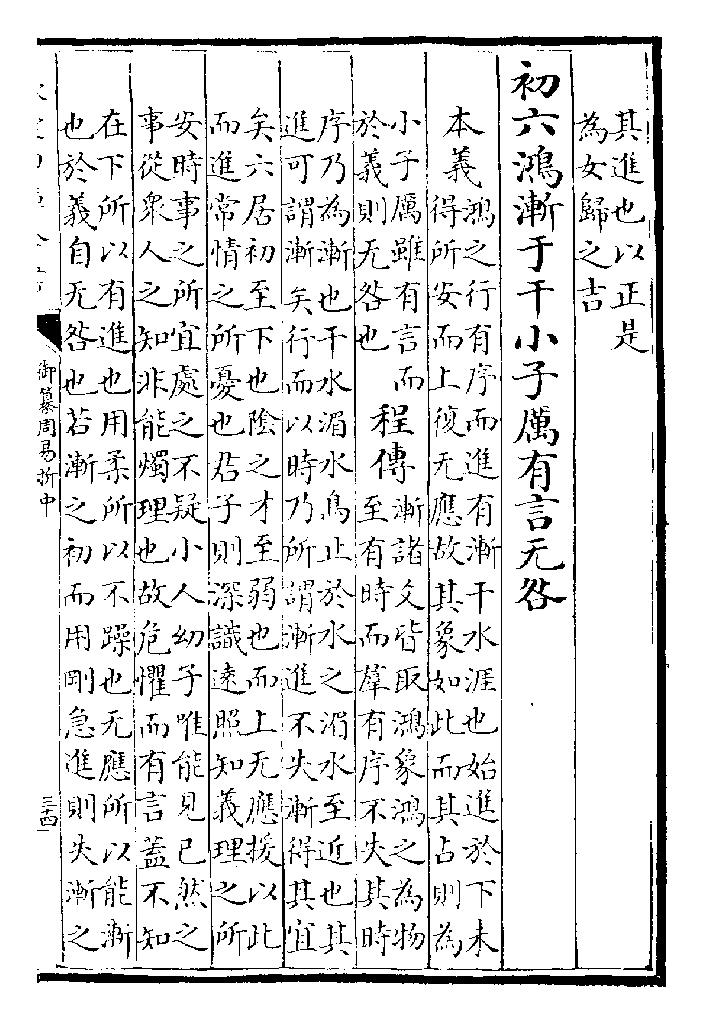 其進也以正是
為女歸之吉
初六鴻漸于干小子厲有言无咎
本義
鴻之行有序而進有漸干水涯也始進於下未
得所安而上復无應故其象如此而其占則為
小子厲雖有言而
於義則无咎也
程傳
漸諸爻皆取鴻象鴻之為物
至有時而羣有序不失其時
序乃為漸也干水湄水鳥止於水之湄水至近也其
進可謂漸矣行而以時乃所謂漸進不失漸得其宜
矣六居初至下也陰之才至弱也而上无應援以此
而進常情之所憂也君子則深識遠照知義理之所
安時事之所宜處之不疑小人幼子唯能見已然之
事從衆人之知非能燭理也故危懼而有言蓋不知
在下所以有進也用柔所以不躁也无應所以能漸
也於義自无咎也若漸之初而用剛急進則失漸之
御纂周易折中
三十四